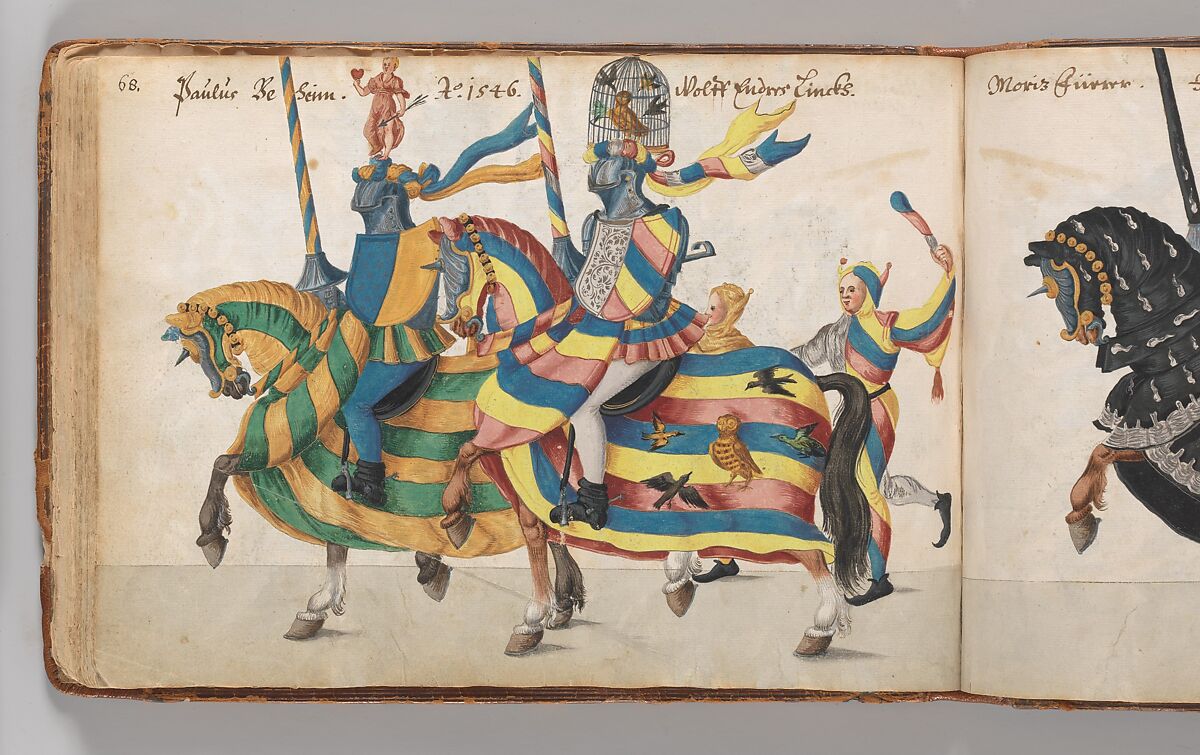 68. Paulus Be heim. Ao. 1546. Wolff Endres Lincks.
Moritz Fürrer.